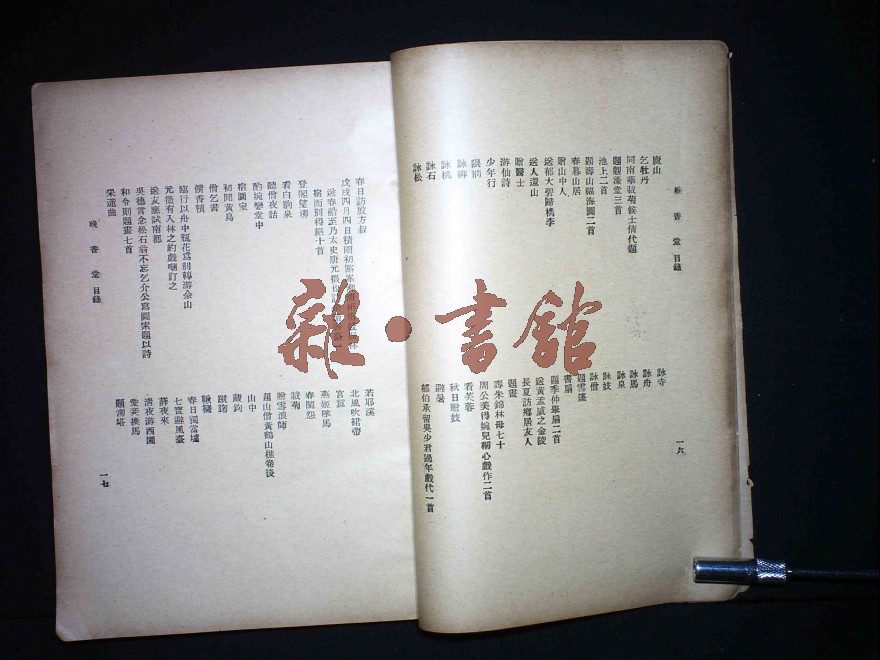 晚香堂 目錄
廬山
乞牡丹
題觀濠堂三首
池上二首
題壽山福海圖二首
春暮山居
贈山中人
送郁大碧歸檇李
送人還山
贈醫士
游仙詩
少年行
詠柳
詠桃
詠石
詠松
詠寺
詠舟
詠馬
詠泉
詠妓
詠僧
題雪蓬
書扇
題季仲舉扇二首
送黃孟威之金陵
長夏訪鄉居友人
題畫
壽朱錦林母七十
周公美得婉兒稱心戲作二首
看芙蓉
秋日贈妓
避暑
郁伯承留吳少君過年戲代一首
一六
春日訪殷方叔
戊戌四月四日積雨初
宿而別得絕十首
登閣望湖
看白駒泉
聽僧夜話
酌婉孌堂中
宿圓室
初聞黃鳥
僧乞書
餽香積
臨行以舟中瓶花爲別轉游佘山
元徵有入林之約戲嘲訂之
送友應試南都
吳德言念松石翁不忘乞介公寫圖索題以詩
和令則題畫七首
采蓮曲
若耶溪
北風吹裙帶
宮怨
燕姬墜馬
春閨怨
栽菊
贈雪浪師
題山僧黃鶴山樵卷後
山中
藏鉤
蹴踘
鞦韆
春日獨當壚
七寶避風臺
薛夜來
清夜游西園
愛妾換馬
題溯塔
晚香堂 目錄
一七
雜·書館